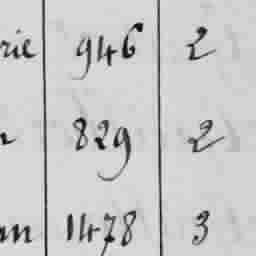 rie 946 2
829 2
an 1478 3